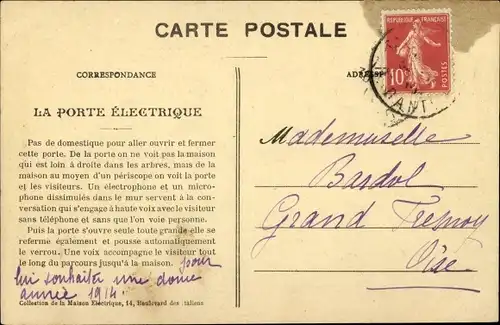 CARTE POSTALE
CORRESPONDANCE
ADRESSE
REPUBLIQUE FRANÇAISE
10
POSTES
LA PORTE ÉLECTRIQUE
Pas de domestique pour aller ouvrir et fermer
cette porte. De la porte on ne voit pas la maison
qui est loin à droite dans les arbres, mais de la
maison au moyen d'un périscope on voit la porte
et les visiteurs. Un électrophone et un micro-
phone dissimulés dans le mur servent à la con-
versation qui s'engage à haute voix avec le visiteur
sans téléphone et sans que l'on voie personne.
Puis la porte s'ouvre seule toute grande elle se
referme également et pousse automatiquement
le verrou. Une voix accompagne le visiteur tout
le long du parcours jusqu'à la maison. pour
lui souhaiter une bonne
année 1914.
Collection de la Maison Electrique, 14, Boulevard des Italiens
Mademoiselle
Bardol
Grand Fresnoy
Oise